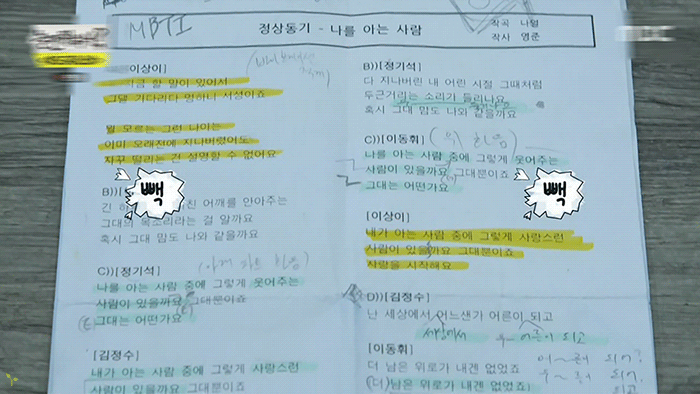 MBTI
정상동기 - 나를 아는 사람
작곡 나얼
작사 영준
이상이]
금 할 말이 있어서
그댈 기다리다 망하니 서성이죠
뭘 모르는 그런 나이는
이미 오래전에 지나버렸어도
자꾸 떨리는 건 설명할 수 없어요
B)
긴 하 친 어깨를 안아주는
그대의 목소리라는 걸 알까요
혹시 그대 맘도 나와 같을까요
C))[정기석]
나를 아는 사람 중에 그렇게 웃어주는
사람이 있을까요 그대뿐이죠
그대는 어떤가요
[김정수]
내가 아는 사람 중에 그렇게 사랑스런
사람이 있을까요 그대뿐이죠
B))[정기석]
다 지나버린 내 어린 시절 그때처럼
두근거리는 소리가 들리나요
혹시 그대 맘도 나와 같을까요
C))[이동휘]
나를 아는 사람 중에 그렇게 웃어주는
사람이 있을까요 그대뿐이죠
그대는 어떤가요
빽
빽
[이상이]
내가 아는 사람 중에 그렇게 사랑스런
사람이 있을까요 그대뿐이죠
사랑을 시작해요
D))[김정수]
난 세상에서 어느샌가 어른이 되고
세상에서
우~ 어른이 되고
[이동휘]
더 남은 위로가 내겐 없었죠
(더)남은 위로가 내겐 없었죠